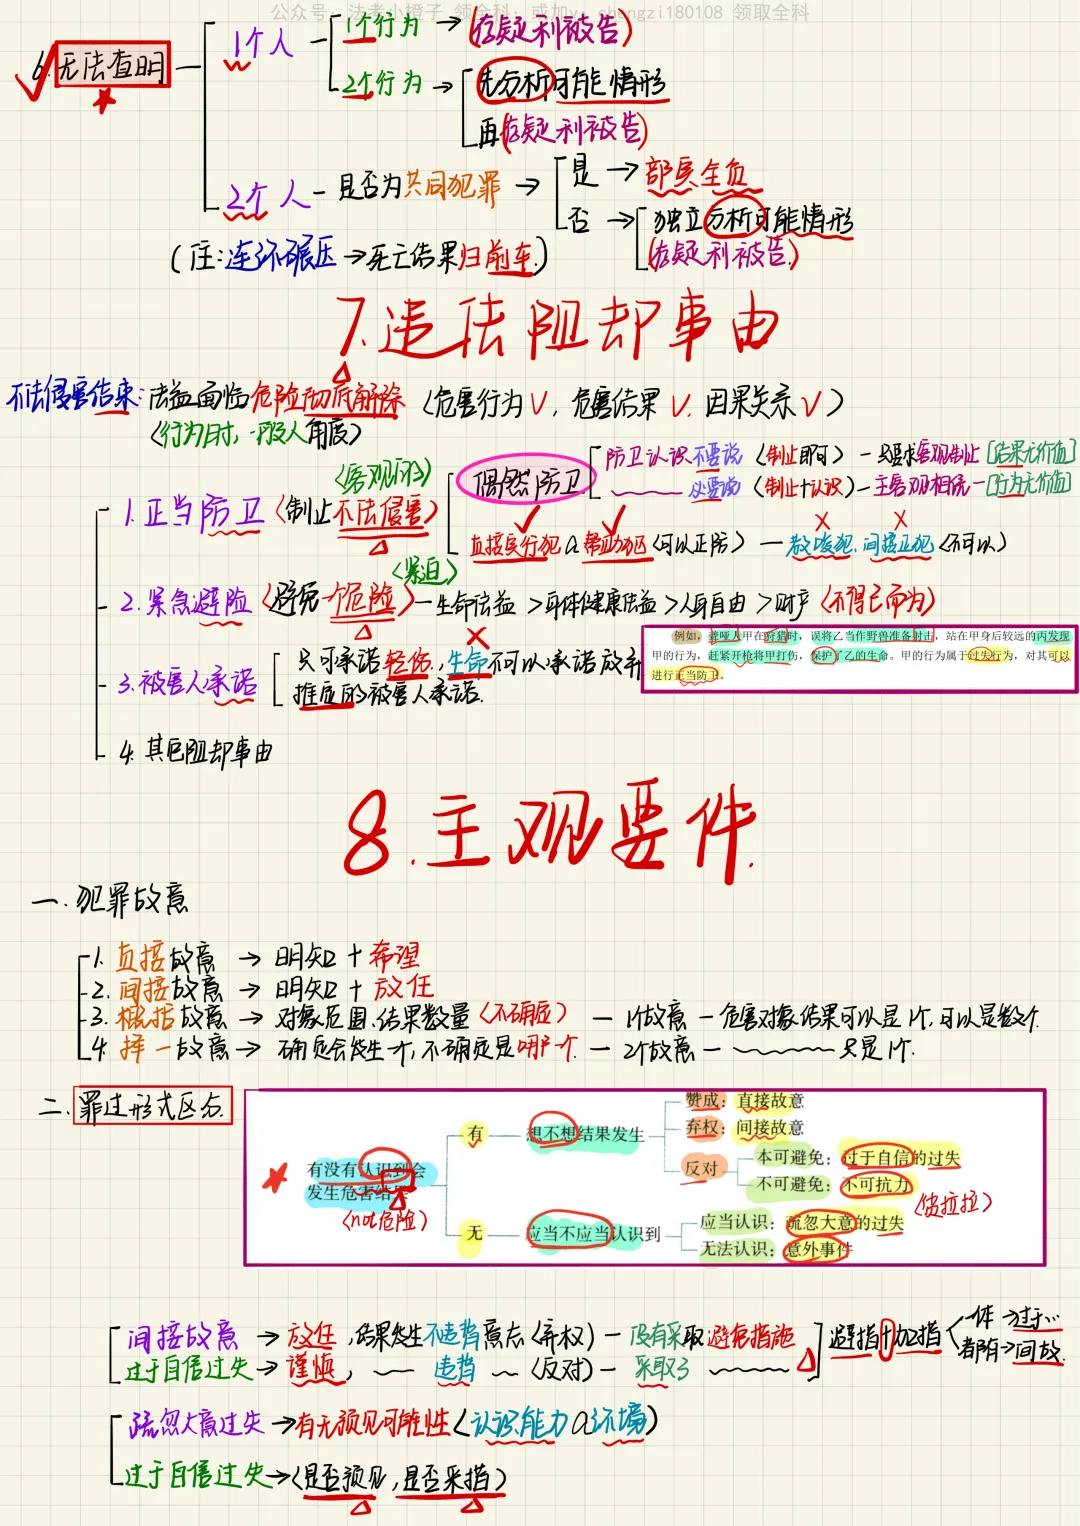 公众号：法考小橙子 领全科；或加v：chengzi180108 领取全科
6.无法查明
1个人
1个行为 → (存疑利被告)
2个行为 → 先分析可能情形
再(存疑利被告)
2个人 - 是否为共同犯罪 → 是 → 部实全负
否 → 独立分析可能情形
(存疑利被告.)
(注:连环碾压→死亡结果归前车.)
7.违法阻却事由
不法侵害结束:法益面临危险彻底解除(危害行为√.危害结果√.因果关系√)
(行为时,一般人角度)
(客观的)
1.正当防卫(制止不法侵害)
偶然防卫
防卫认识不要说(制止即可) - 只要求客观制止[结果无价值]
必要说(制止+认识) - 主客观相统一[行为无价值]
直接实行犯a帮助犯(可以正防) — 教唆犯.间接正犯(不可以)
(紧迫)
2.紧急避险(避免一个危险) - 生命法益>身体健康法益>人身自由>财产(不得已而为)
例如，聋哑人甲在狩猎时，误将乙当作野兽准备射击，站在甲身后较远的丙发现
甲的行为，赶紧开枪将甲打伤，保护了乙的生命。甲的行为属于过失行为，对其可以
进行正当防卫。
3.被害人承诺
只可承诺轻伤.,生命不可以承诺放弃
推定的被害人承诺.
4.其它阻却事由
8.主观要件.
一.犯罪故意
1.直接故意 → 明知+希望
2.间接故意 → 明知+放任
3.概括故意 → 对象范围.结果数量(不确定) — 1个故意 - 危害对象结果可以是1个,可以是数个.
4.择一故意 → 确定会发生一个,不确定是哪个 — 2个故意 - 只是1个.
二.罪过形式区分.
有没有认识到会
发生危害结果
(not危险)
有
想不想结果发生
赞成：直接故意
弃权：间接故意
反对
本可避免：过于自信的过失
不可避免：不可抗力
无
应当不应当认识到
应当认识：疏忽大意的过失
无法认识：意外事件
间接故意 → 放任,结果发生不违背意志(弃权) - 没有采取避免措施
过于自信过失 → 谨慎, 违背 (反对) - 采取了
避措+加措
一件→过于…
都阴→间故.
疏忽大意过失 → 有无预见可能性(认识能力a环境)
过于自信过失 → (是否预见,是否采措)